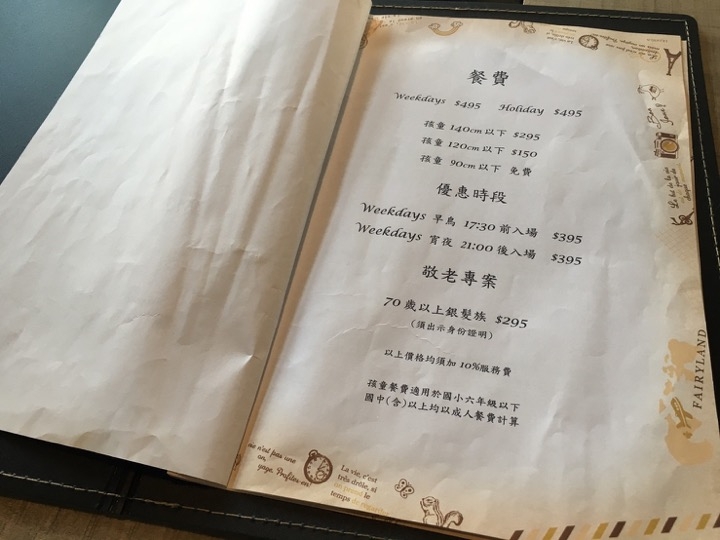 餐費
Weekdays $495 Holiday $495
孩童 140cm 以下 $295
孩童 120cm 以下 $150
孩童 90cm 以下 免費
優惠時段
Weekdays 早鳥 17:30 前入場 $395
Weekdays 宵夜 21:00 後入場 $395
敬老專案
70 歲以上銀髮族 $295
(須出示身份證明)
以上價格均須加 10%服務費
孩童餐費適用於國小六年級以下
國中(含)以上均以成人餐費計算
FAIRYLAND
n'est pas une
La vie, c'est
très drôle, si
on prend le
temps de